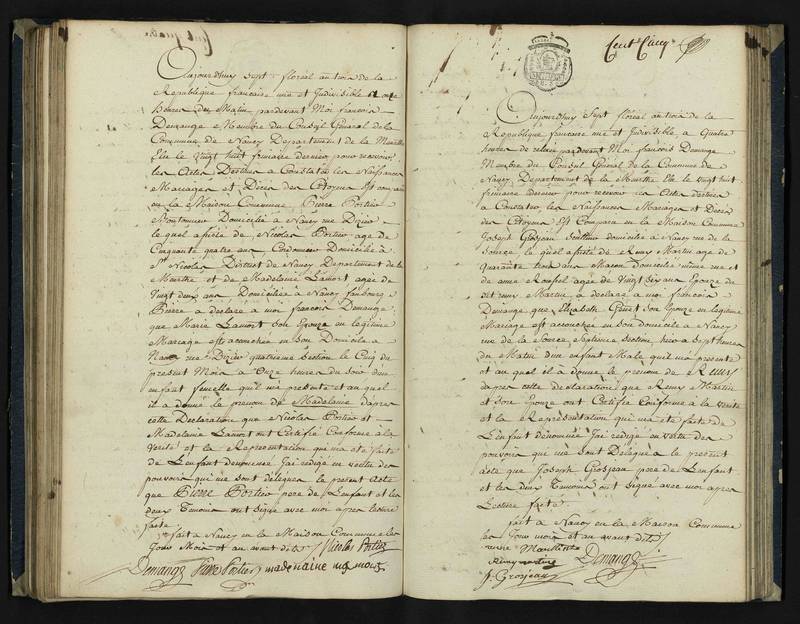 Cent quatre
Aujourdhuy Sept floreal an trois de la
Republique francaise une et Indivisible a onze
heures du Matin pardevant Moi francois
Demange Membre du Conseil General de la
Commune de Nancy Departement de la Meurthe
Elu le Vingt huit frimaire dernier pour recevoir
les Actes Destinés a Constater les Naissances
Mariages et Décés des Citoyens Est comparu
en la Maison Commune Pierre Portier
Domicilié a Nancy rue Dizier
lequel assisté de Nicolas Portier age de
Cinquante quatre ans Cordonnier Domicilié a
St Nicolas District de Nancy Departement de la
Meurthe et de Madelaine Lamort agée de
Vingt deux ans Domiciliée a Nancy faubourg
Pierre a declaré a moi francois Demange
que Marie Lamort son Epouze en legitime
Mariage est accouchée en son Domicile a
Nancy rue Dizier quatrieme Section le Cinq du
present Mois a Onze heures du Soir d'un
enfant femelle quil ma presenté et au quel
il a donné le prenom de Madelaine dapres
cette Declaration que Nicolas Portier et
Madelaine Lamort ont Certifié Conforme a la
Verité et la Representation qui ma eté faite
de L'enfant denommé Jai redigé en vertu des
pouvoirs qui me sont delegues le present acte
que Pierre Portier pere de L'enfant et les
deux Temoins ont signé avec moi apres lecture
faite
fait a Nancy en la Maison Commune les
Jour Mois et an avant dits Nicolas Portier
Demange Pierre Portier madelaine la mort
Cent Cinq
Aujourdhuy Sept floreal an trois de la
Republique francaise une et Indivisible, a Quatre
heures de relevée pardevant Moi francois Demange
Membre du Conseil General de la Commune de
Nancy Departement de la Meurthe Elu le Vingt huit
frimaire dernier pour recevoir les Actes destinés
a Constater les Naissances Mariages et Décés
des Citoyens Est Comparu en la Maison Commune
Joseph Grosjean domicilié a Nancy rue de la
Source, le quel assisté de Remy Martin age de
Quarante trois ans Macon domicilié même rue et
de anne Roussel agée de Vingt Six ans Epouze du
dit remy Martin a declaré a moi francois
Demange que Elizabeth Genet son Epouze en legitime
Mariage est accouchée en son domicile a Nancy
rue de la Source Septieme Section hier a Sept heures
du Matin d'un enfant Male quil ma presenté
et au quel il a donné le prenom de Remy
dapres cette declaration que Remy Martin
et son Epouze ont Certifié Conforme a la Verité
et la Representation qui ma eté faite de
L'enfant denommé Jai redigé en vertu des
pouvoirs qui me sont Délégués le present
acte que Joseph Grosjean pere de L'enfant
et les deux Temoins ont Signé avec moi apres
Lecture faite
fait a Nancy en la Maison Commune
les Jour mois et an avant dits
Remy martin Demange
J. Grosjean